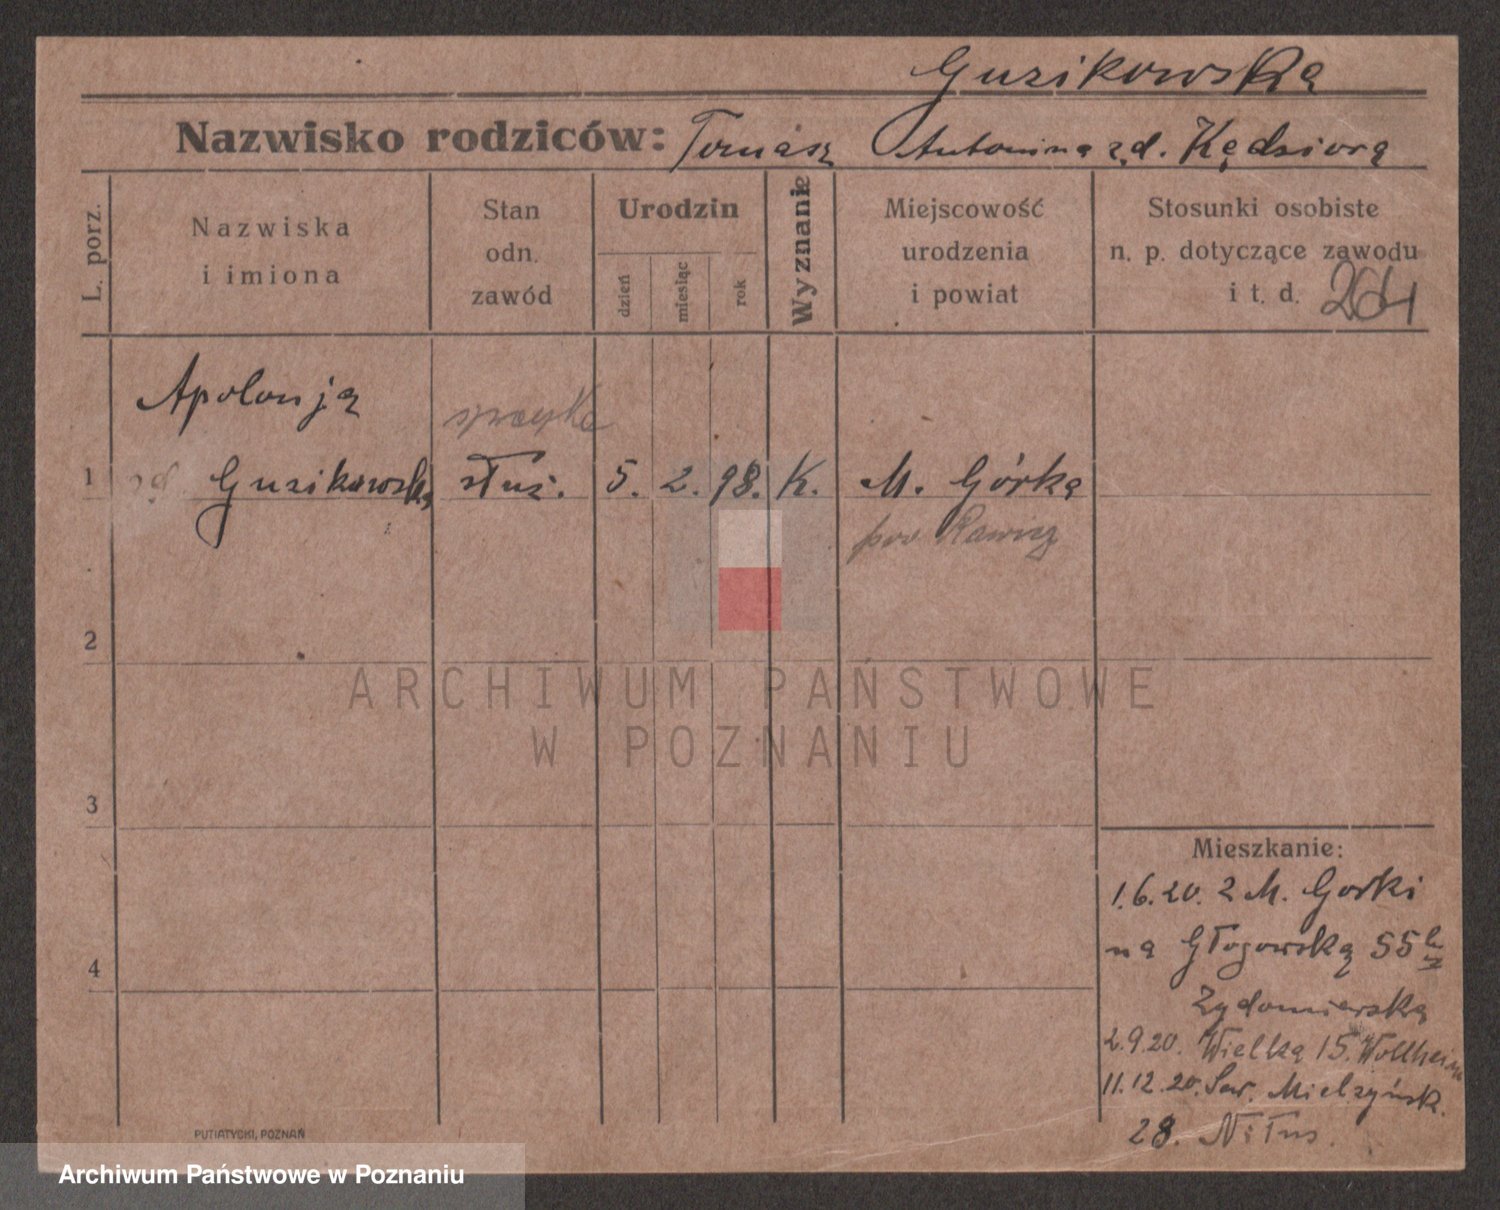 Guzikowska
Nazwisko rodziców: Tomasz Antonina zd. Kędziora
L. porz.
Nazwiska
i imiona
Stan
odn.
zawód
Urodzin
dzień
miesiąc
rok
Wyznanie
Miejscowość
urodzenia
i powiat
Stosunki osobiste
n. p. dotyczące zawodu
i t. d. 264
Apolonja
1 Guzikowska służ. 5. 2. 98. K. M. Górka
pow Rawicz
2
ARCHIWUM PAŃSTWOWE
W POZNANIU
3
Mieszkanie:
1.6.20. z M. Gorki
4 na Głogowską 55
Żydomierska
2.9.20. Wielka 15. Wollheim
11.12.20. Sew. Mielżyńsk.
28.
PUTIATYCKI, POZNAŃ
Archiwum Państwowe w Poznaniu